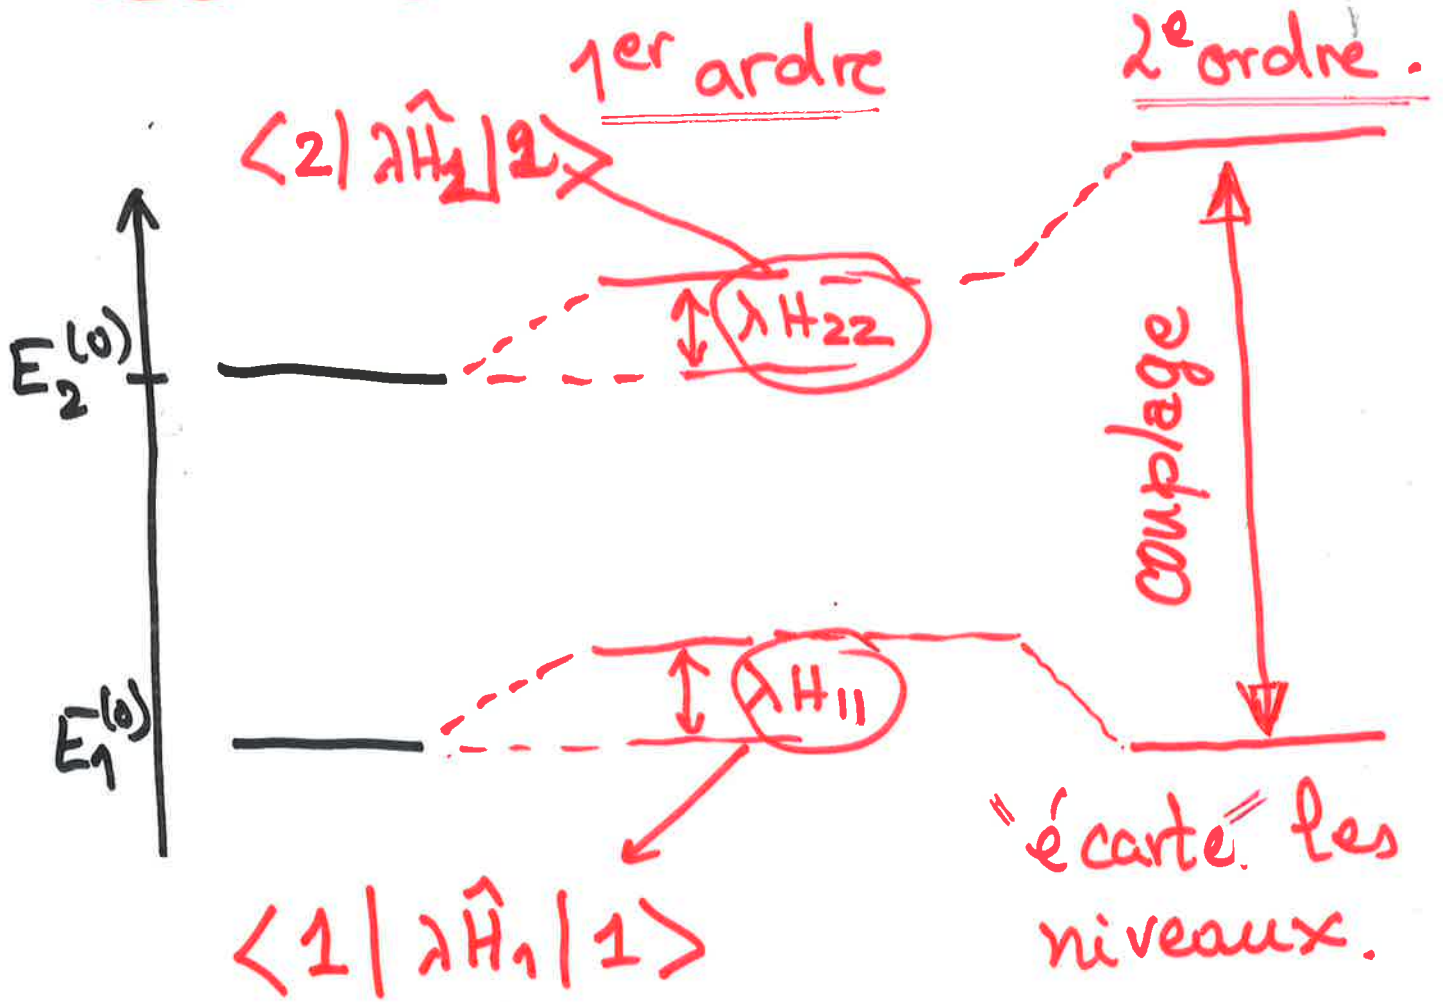 1er ardre
2e ordre.
<2| λĤ1 |2>
λH22
E2(0)
couplage
λH11
E1(0)
"écarte" les
niveaux.
<1| λĤ1 |1>